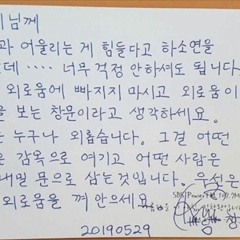 님께
과 어울리는 게 힘들다고 하소연을
데 ‥‥ 너무 걱정 안하셔도 됩니다.
외로움에 빠지지 마시고 외로움이
을 보는 창문이라고 생각하세요.
는 누구나 외롭습니다. 그걸 어떤
은 감옥으로 여기고 어떤 사람은
내밀 몸으로 삼는것입니다. 우선은
외로움을 껴안으세요.
20190529